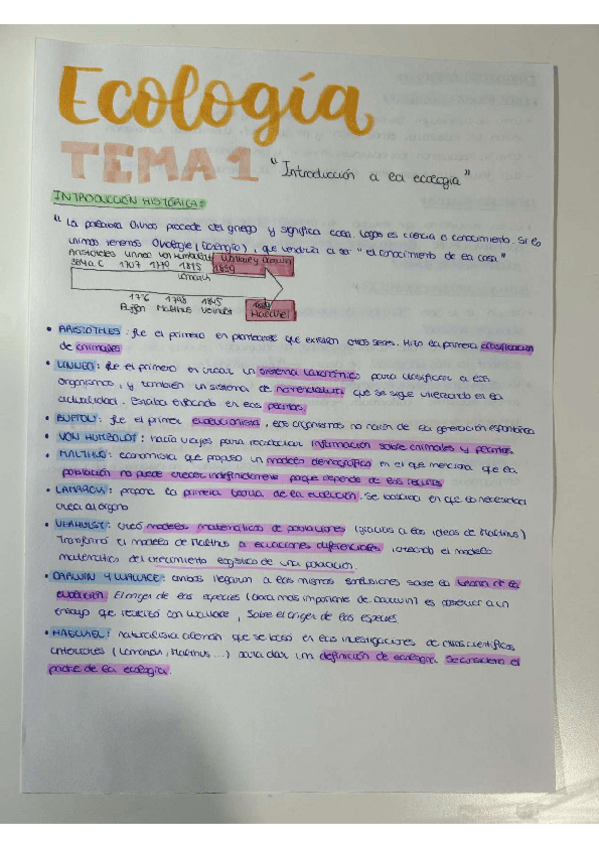 Ecología
TEMA 1 "Introducción a la ecología"
INTRODUCCIÓN HISTÓRICA:
" La palabra Oikos procede del griego y significa casa. Logos es ciencia o conocimiento. Si lo
unimos tenemos Okologie (Ecología), que vendría a ser "el conocimiento de la casa"
Aristóteles Linneo Von Humboldt Wallace y Darwin
a.C 1707 1770 1895 1859
Lamarck
1776 1798 1845
Buffon Malthus Verhulst
Haeckel
• ARISTÓTELES: fue el primero en plantearse que existían otros seres. Hizo la primera clasificación
de animales
• LINNEO: fue el primero en crear un sistema taxonómico para clasificar a los
organismos, y también un sistema de nomenclatura que se sigue utilizando en la
actualidad. Estaba enfocado en las plantas.
• BUFFON: fue el primer evolucionista, los organismos no nacen de la generación espontánea
• VON HUMBOLDT: hacía viajes para recolectar información sobre animales y plantas.
• MALTHUS: economista que propuso un modelo demográfico en el que menciona que la
población no puede crecer indefinidamente porque depende de los recursos
• LAMARCK: propone la primera teoría de la evolución. Se basaba en que la necesidad
crea al órgano
• VERHULST: creó modelos matemáticos de poblaciones (gracias a las ideas de Malthus)
Transformó el modelo de Malthus a ecuaciones diferenciales, creando el modelo
matemático del crecimiento logístico de una población.
• DARWIN Y WALLACE: ambos llegaron a las mismas conclusiones sobre la teoría de la
evolución. El origen de las especies (obra más importante de Darwin) es posterior a un
ensayo que realizó con Wallace, Sobre el origen de las especies
• HAECKEL: naturalista alemán que se basó en las investigaciones de otros científicos
anteriores (Lamarck, Malthus...) para dar una definición de ecología. Se considera el
padre de la ecología.